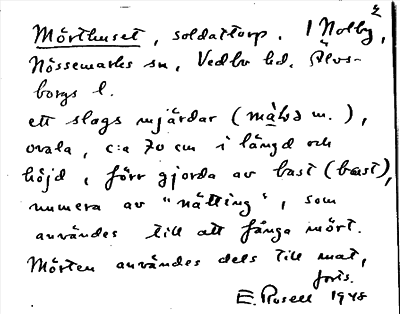 2
Mörthuset, soldattorp. I Nolby,
Nössemarks sn, Vedbo hd. Älvs-
borgs l.
ett slags mjärdar (må m.),
ovala, c:a 70 cm i längd och
höjd, förr gjorda av bast (bast),
numera av "nätting", som
användes till att fånga mört.
Mörten användes dels till mat,
forts.
E. Rosell 1948